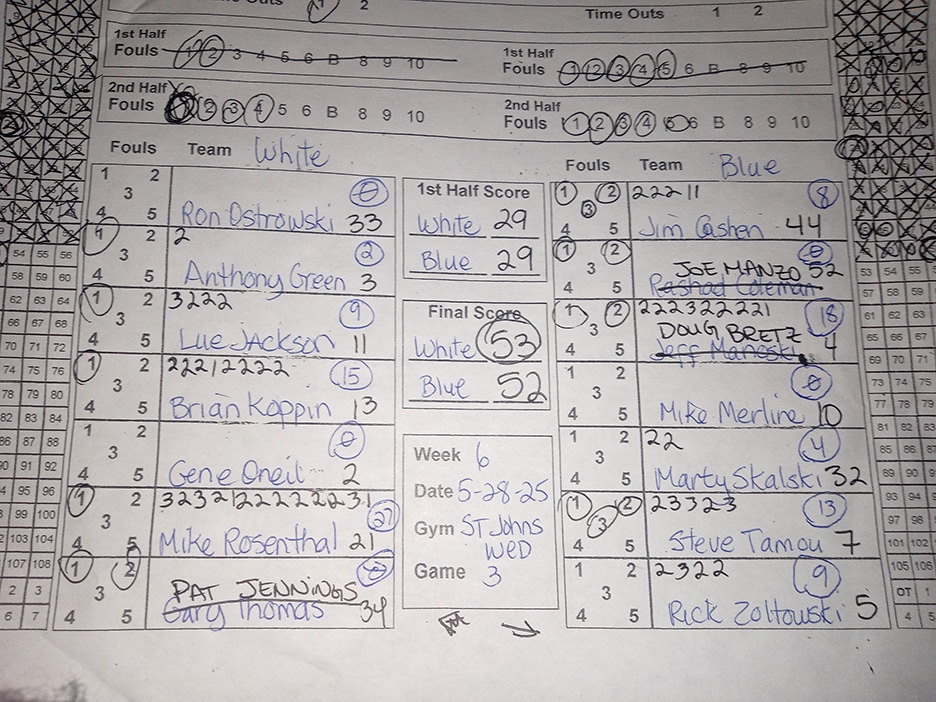 1 2
Time Outs 1 2
1st Half
Fouls 1 2 3 4 5 6 B 8 9 10
1st Half
Fouls 1 2 3 4 5 6 B 8 9 10
2nd Half
Fouls 2 3 4 5 6 B 8 9 10
2nd Half
Fouls 1 2 3 4 5 6 B 8 9 10
Fouls Team White
1 2 3 4 5
0
Ron Ostrowski 33
1 2 3 4 5
2
2
Anthony Green 3
1 2 3 4 5
3222
9
Lue JAckson 11
1 2 3 4 5
22212222
15
Brian Koppin 13
1 2 3 4 5
0
Gene Oneil 2
1 2 3 4 5
27
Mike Rosenthal 21
1 2 3 4 5
0
PAT JENNINGS
Gary Thomas 34
1st Half Score
White 29
Blue 29
Final Score
White 53
Blue 52
Week 6
Date 5-28-25
Gym ST Johns
WED
Game 3
Fouls Team Blue
1 2 3 4 5
22211
8
Jim Cashen 44
1 2 3 4 5
0
JOE MANZO 52
Rashad Coleman
1 2 3 4 5
2223222221
18
DOUG BRETZ
Jeff 4
1 2 3 4 5
0
Mike Merline 10
1 2 3 4 5
22
4
Marty Skalski 32
1 2 3 4 5
23323
13
Steve Tamou 7
1 2 3 4 5
2322
9
Rick Zoltowski 5
54 55 56
58 59 60
62 63 64
66 67 68
70 71 72
74 75 76
78 79 80
82 83 84
86 87 88
90 91 92
95 96
99 100
103 104
107 108
2 3
6 7
53 54 55
57 58 59
61 62 63
65 66 67
69 70 71
73 74 75
77 78 79
81 82 83
85 86 87
89 90 91
93 94
97 98
101 102
105 106
OT 1
4 5